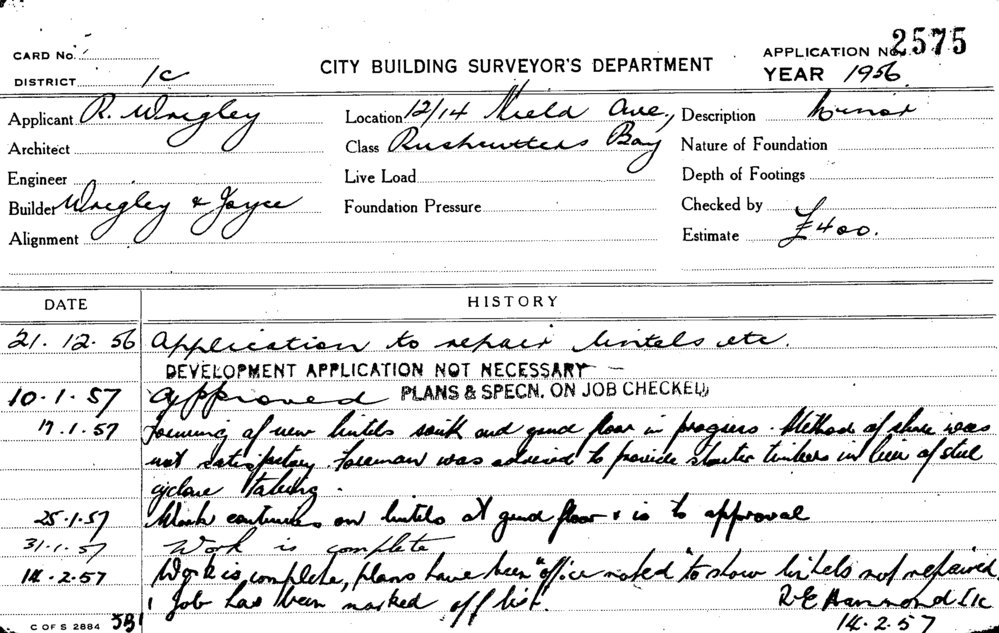 CARD No.
DISTRICT 1c
CITY BUILDING SURVEYOR'S DEPARTMENT
APPLICATION No. 2575
YEAR 1956
Applicant R. Wrigley
Location 12/14 Nield Ave.,
Description Minor
Architect
Class Rushcutters Bay
Nature of Foundation
Engineer
Live Load
Depth of Footings
Builder Wrigley & Joyce
Foundation Pressure
Checked by
Alignment
Estimate £400.
DATE HISTORY
21.12.56 Application to repair lintels etc.
DEVELOPMENT APPLICATION NOT NECESSARY
10.1.57 Approved PLANS & SPECN. ON JOB CHECKED
17.1.57 Forming of new lintels south end grnd floor in progress. Method of shore was
not satisfactory. Foreman was advised to provide timbers in lieu of steel
cyclone tubing.
25.1.57 Work continues on lintels at grnd floor & is to approval
31.1.57 Work is complete
14.2.57 Work is complete, plans have been "office noted" to show lintels not repaired.
Job has been marked off list. R E Hammond 1c
14.2.57
C OF S 2884